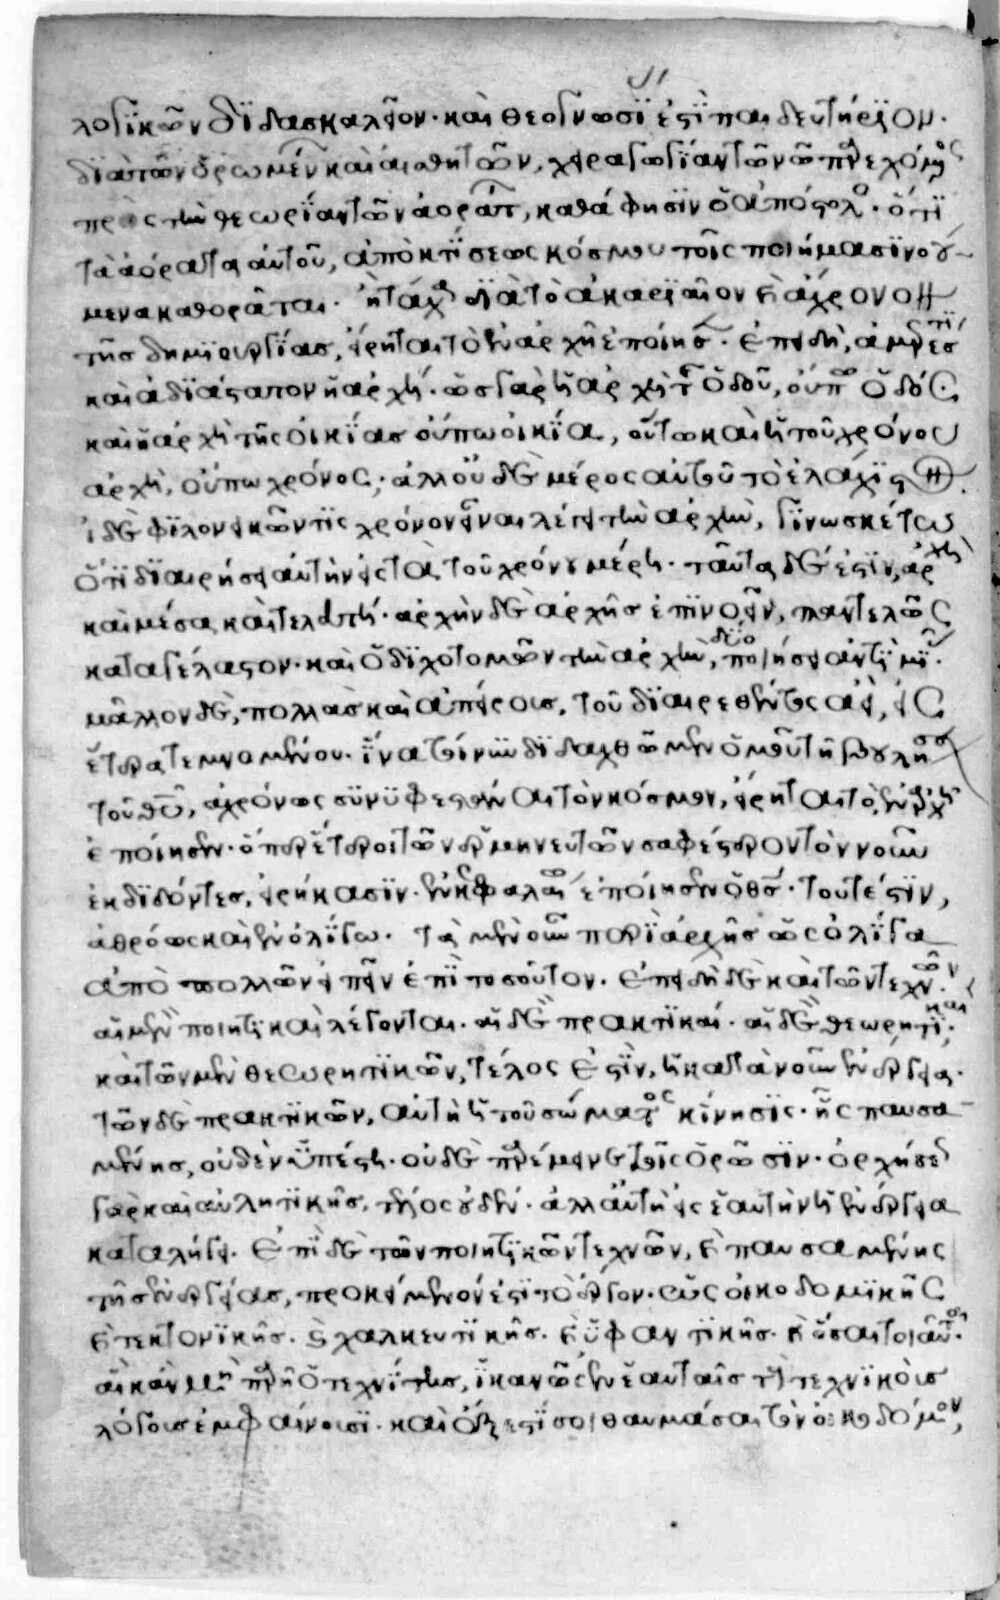 λογικῶν διδασκαλεῖον· καὶ θεογνωσί ἐστι παιδευτήριον·
διὰ τῶν ὁρωμένων καὶ αἰσθητῶν, χειραγωγίαν τῶ νῶ παρεχόμενος
πρὸς τὴν θεωρίαν τῶν ἀοράτων, καθά φησιν ὁ ἀπόστολος· ὅτι
τὰ ἀόρατα αὐτοῦ, ἀπὸ κτίσεως κόσμου τοῖς ποιήμασι νοού-
μενα καθορᾶται· ἢ τάχα διὰ τὸ ἀκαριαῖον καὶ ἄχρονον
τῆς δημιουργίας, εἴρηται τὸ ἐν ἀρχῆ ἐποίησεν· ἐπειδὴ, ἀμερές τι
καὶ ἀδιάστατον ἡ ἀρχή· ὡς γὰρ ἡ ἀρχὴ τῆς ὁδοῦ, οὔπω ὁδός
καὶ ἡ ἀρχὴ τῆς οἰκίας οὔπω οἰκία, οὕτω καὶ ἡ τοῦ χρόνου
ἀρχὴ, οὔπω χρόνος· ἀλλ' οὐδὲ μέρος αὐτοῦ τὸ ἐλάχιστον.
εἰ δὲ φιλονεικῶν τις χρόνον εἶναι λέγει τὴν ἀρχὴν, γινωσκέτω
ὅτι διαιρήσει αὐτὴν εἰς τὰ τοῦ χρόνου μέρη· ταῦτα δέ ἐστιν, ἀρχὴ
καὶ μέσα καὶ τελευτή· ἀρχὴν δὲ ἀρχῆς ἐπινοεῖν, παντελῶς
καταγέλαστον· καὶ ὁ διχοτομῶν τὴν ἀρχὴν, δύο ποιήσει ἀντὶ μιᾶς·
μᾶλλον δὲ, πολλὰς καὶ ἀπείρους, τοῦ διαιρεθέντος ἀεὶ, εἰς
ἕτερα τεμνομένου· ἵνα τοίνυν διδαχθῶμεν ὁμοῦ τῆ βουλήσει
τοῦ θεοῦ, ἀχρόνως συνυφεστάναι τὸν κόσμον, εἴρηται τὸ, ἐν ἀρχῆ
ἐποίησεν· ὅπερ ἕτεροι τῶν ἑρμηνευτῶν σαφέστερον τὸν νοῦν
ἐκδιδόντες, εἰρήκασιν· ἐν κεφαλαίω ἐποίησεν ὁ θεός· τουτέστιν,
ἀθρόως καὶ ἐν ὀλίγω· τὰ μὲν οὖν περὶ ἀρχῆς ὡς ὀλίγα
ἀπὸ πολλῶν εἰπεῖν ἐπὶ τοσοῦτον· ἐπειδὴ δὲ καὶ τῶν τεχνῶν·
αἱ μὲν ποιητικαὶ λέγονται· αἱ δὲ πρακτικαί· αἱ δὲ θεωρητικαί·
καὶ τῶν μὲν θεωρητικῶν, τέλος ἐστὶν, ἡ κατὰ νοῦν ἐνέργεια·
τῶν δὲ πρακτικῶν, αὐτὴ ἡ τοῦ σώματος κίνησις· ἧς παυσα-
μένης, οὐδὲν ὑπέστη· οὐδὲ παρέμεινε τοῖς ὁρῶσιν· ὀρχήσεως
γὰρ καὶ αὐλητικῆς, τέλος οὐδέν· ἀλλ' αὐτὴ εἰς ἑαυτὴν ἡ ἐνέργεια
καταλήγει· ἐπὶ δὲ τῶν ποιητικῶν τεχνῶν, καὶ παυσαμένης
τῆς ἐνεργείας, προκείμενόν ἐστι τὸ ἔργον· ὡς οἰκοδομικῆς
καὶ τεκτονικῆς· καὶ χαλκευτικῆς· καὶ ὑφαντικῆς· καὶ ὅσαι τοιαῦται·
αἳ κἂν μὴ παρῆ ὁ τεχνίτης, ἱκανῶς ἐν ἑαυταῖς τοὺς τεχνικοὺς
λόγους ἐμφαίνουσι· καὶ ἔξεστί σοι θαυμάσαι τὸν οἰκοδόμον,